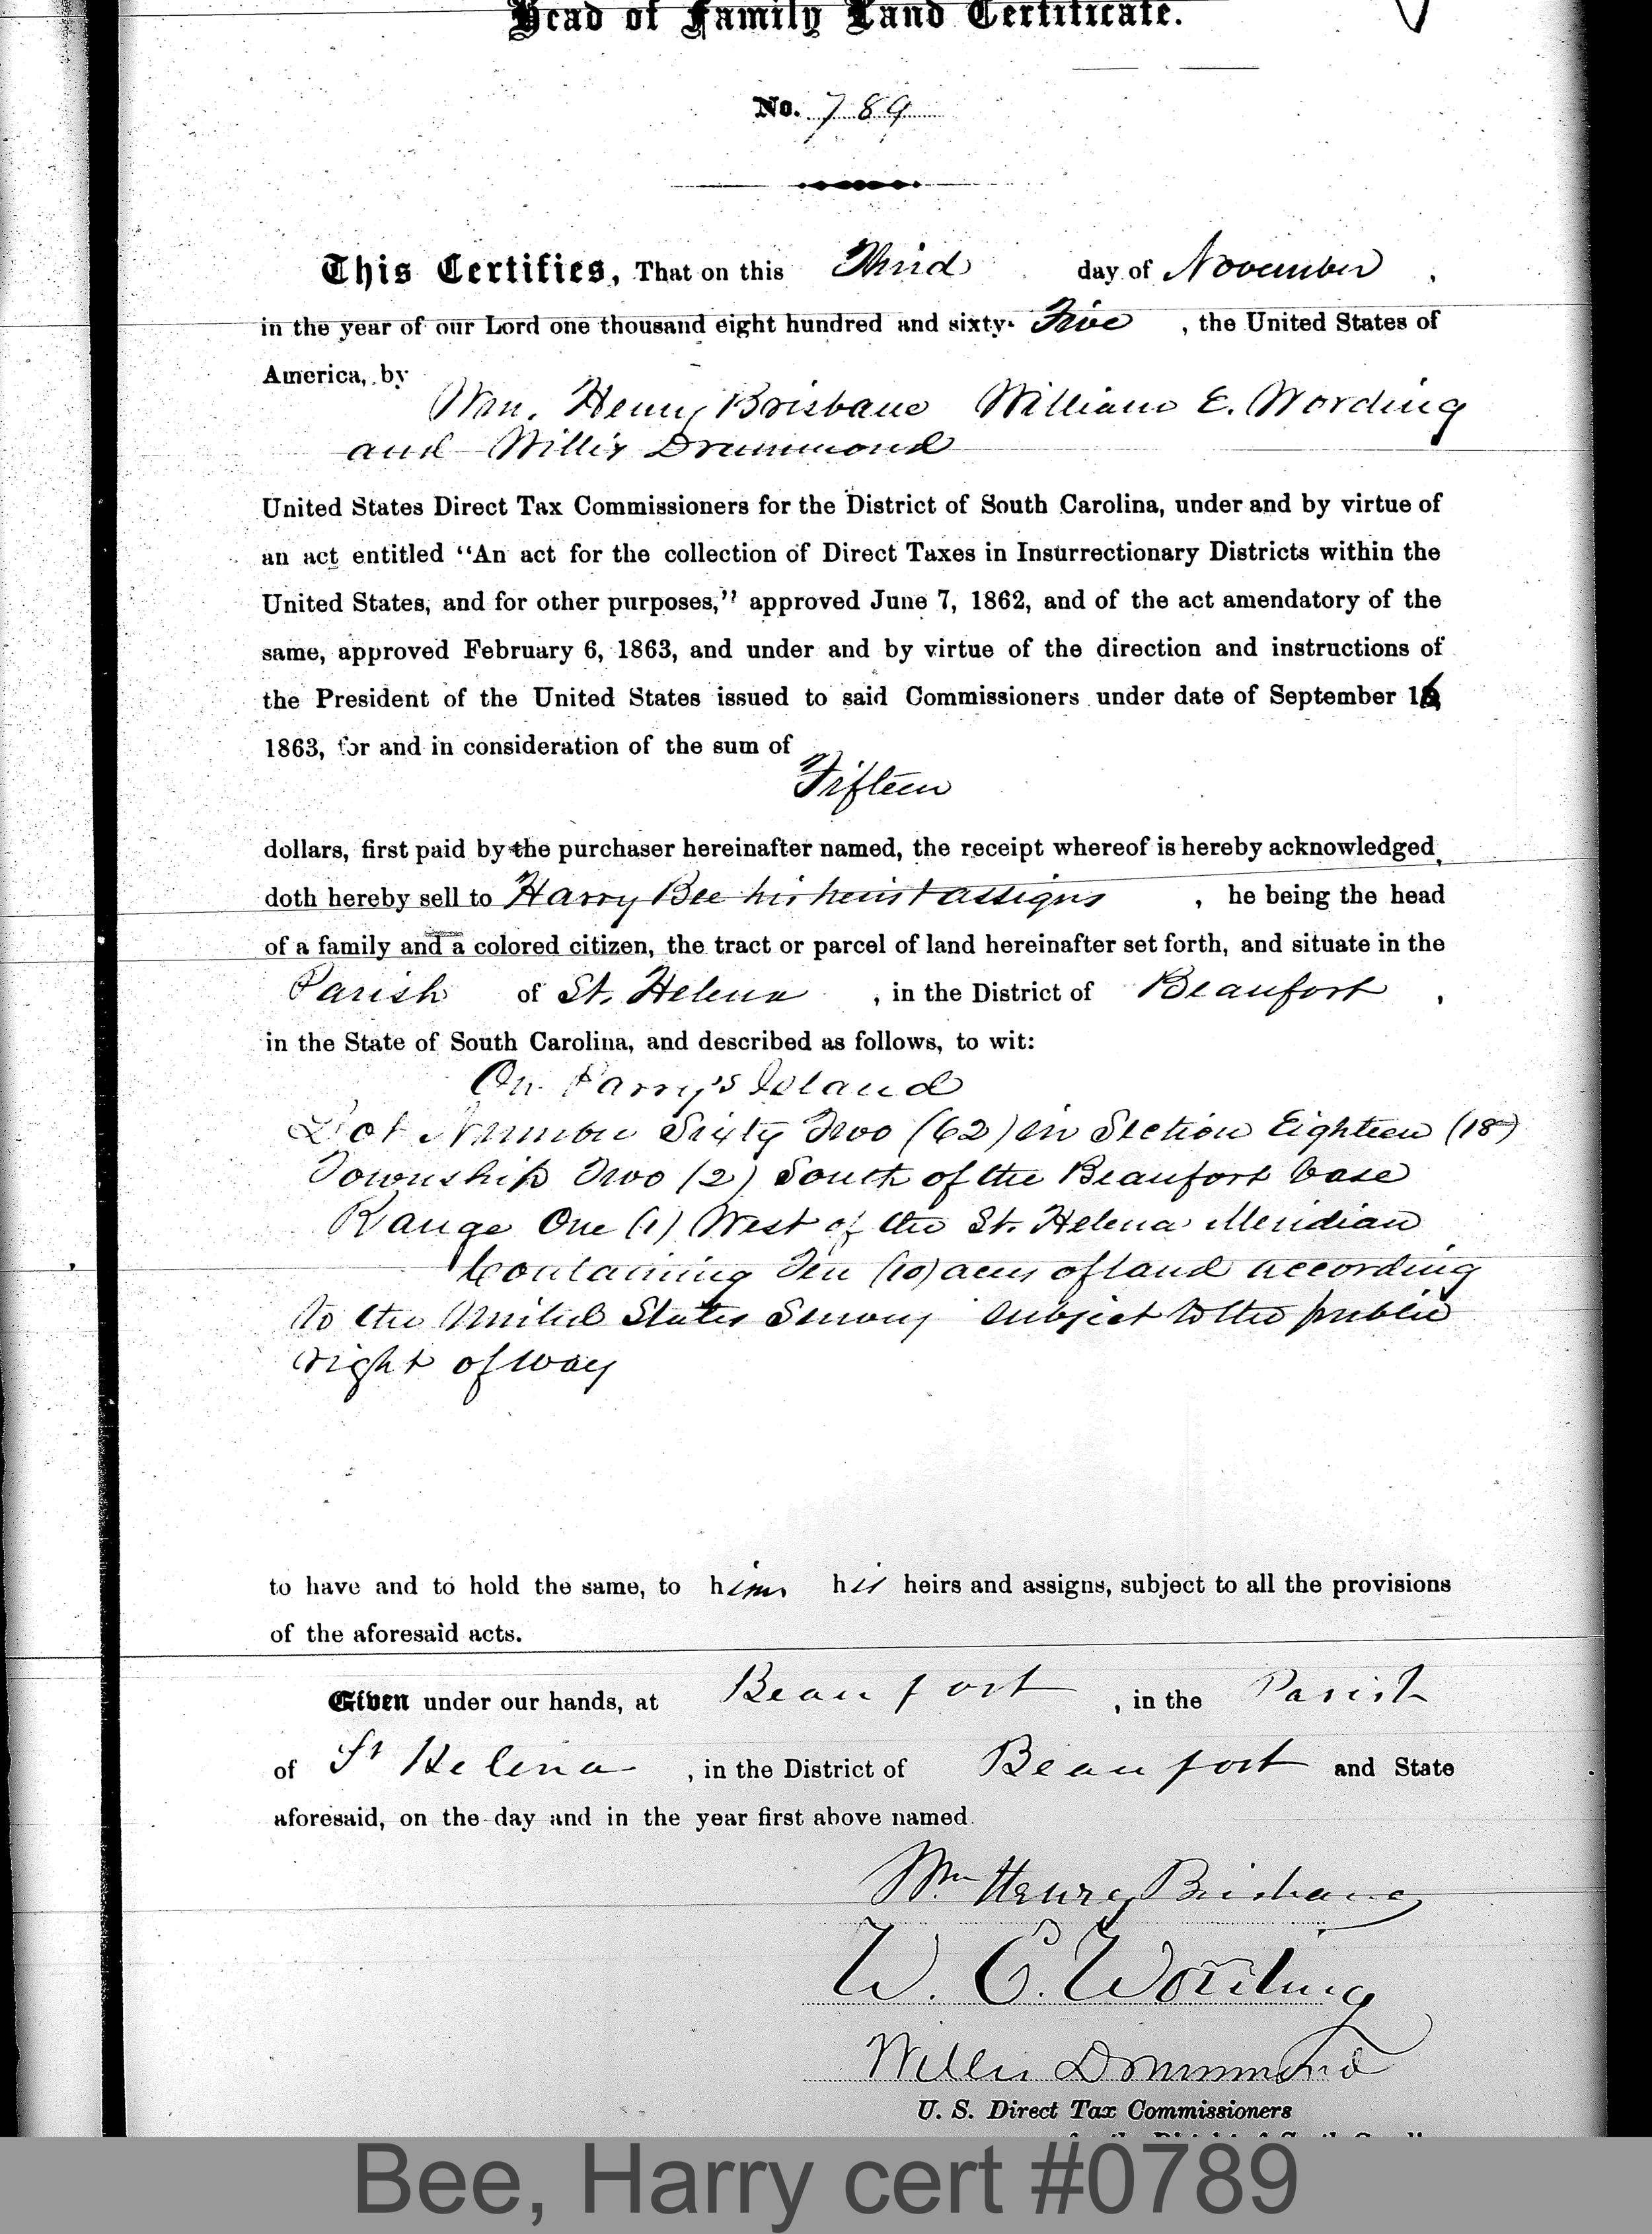 Head of Family Land Certificate.
No. 789
This Certifies, That on this Third day of November,
in the year of our Lord one thousand eight hundred and sixty-Five, the United States of
America, by
Wm. Henry Brisbane William E. Wording
and Willis Drummond
United States Direct Tax Commissioners for the District of South Carolina, under and by virtue of
an act entitled "An act for the collection of Direct Taxes in Insurrectionary Districts within the
United States, and for other purposes," approved June 7, 1862, and of the act amendatory of the
same, approved February 6, 1863, and under and by virtue of the direction and instructions of
the President of the United States issued to said Commissioners under date of September 16
1863, for and in consideration of the sum of
Fifteen
dollars, first paid by the purchaser hereinafter named, the receipt whereof is hereby acknowledged,
doth hereby sell to Harry Bee his heirs + assigns, he being the head
of a family and a colored citizen, the tract or parcel of land hereinafter set forth, and situate in the
Parish of St. Helena, in the District of Beaufort,
in the State of South Carolina, and described as follows, to wit:
On Parry's Island
Lot Number Sixty Two (62) in Section Eighteen (18)
Township Two (2) South of the Beaufort base
Range One (1) West of the St. Helena Meridian
Containing Ten (10) acres of land according
to the United States Survey subject to the public
right of way
to have and to hold the same, to him his heirs and assigns, subject to all the provisions
of the aforesaid acts.
Given under our hands, at Beaufort, in the Parish
of St Helena, in the District of Beaufort and State
aforesaid, on the day and in the year first above named.
Wm Henry Brisbane
W. E. Wording
Willis Drummond
U. S. Direct Tax Commissioners
Bee, Harry cert #0789